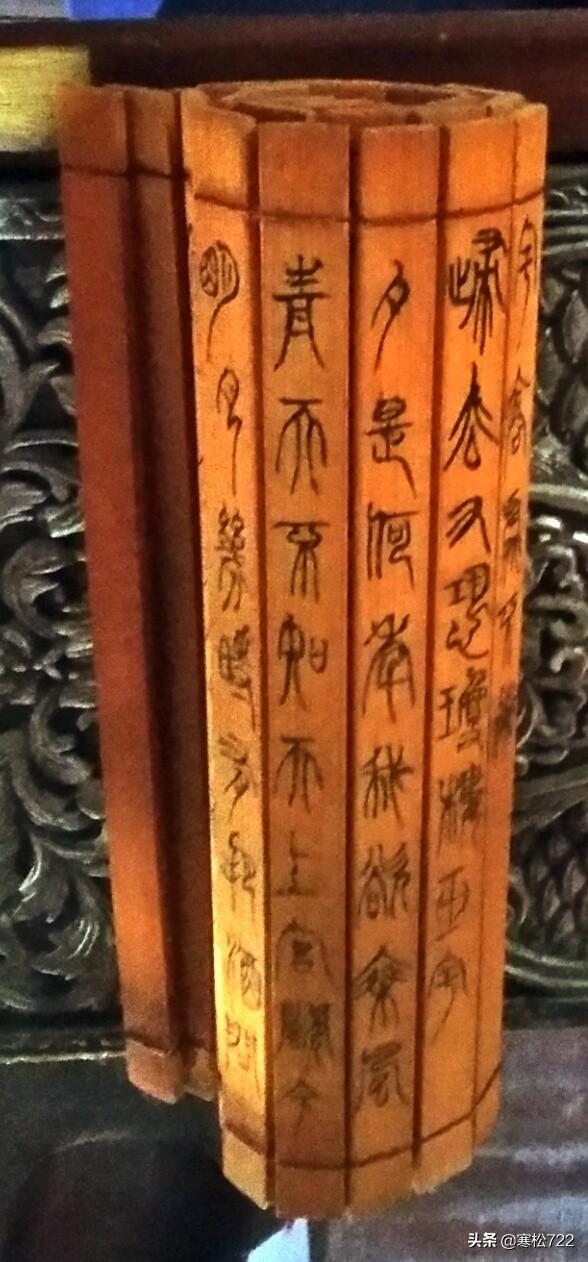 明月幾時有把酒問
青天不知天上宮闕今
夕是何年我欲乘風
歸去又恐瓊樓玉宇
头条 @寒松722